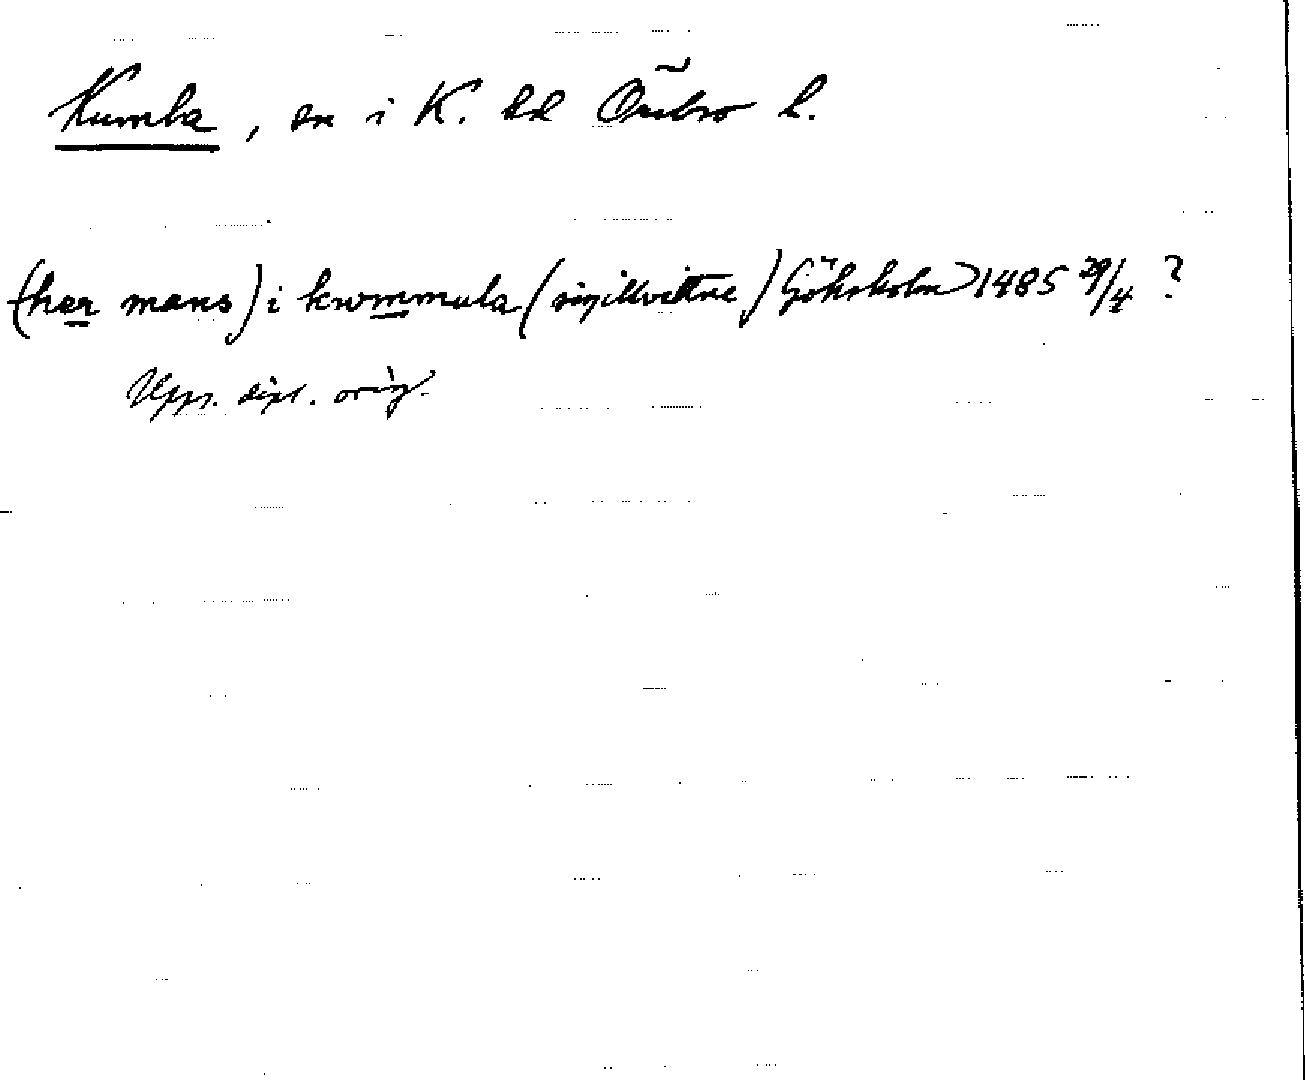 Kumla, sn i K. hd Örebro l.
(her mans) i kwmmula (sigillvittne) Göksholm 1485 29/4 ?
Upps. dipl. orig.